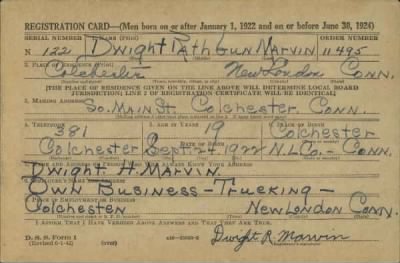 REGISTRATION CARD—(Men born on or after January 1, 1922 and on or before June 30, 1924)
SERIAL NUMBER 1. NAME (Print) ORDER NUMBER
N 122 Dwight Rathbun Marvin 11495
2. PLACE OF RESIDENCE (Print)
Colchester New London Conn.
[THE PLACE OF RESIDENCE GIVEN ON THE LINE ABOVE WILL DETERMINE LOCAL BOARD
JURISDICTION; LINE 2 OF REGISTRATION CERTIFICATE WILL BE IDENTICAL]
3. MAILING ADDRESS
So. Main St. Colchester, Conn.
4. TELEPHONE 5. AGE IN YEARS 6. PLACE OF BIRTH
381 19 Colchester
DATE OF BIRTH
Colchester Sept 24 1922 N.L.Co. - Conn.
7. NAME AND ADDRESS OF PERSON WHO WILL ALWAYS KNOW YOUR ADDRESS
Dwight H. Marvin.
8. EMPLOYER'S NAME AND ADDRESS
Own Business - Trucking -
9. PLACE OF EMPLOYMENT OR BUSINESS
Colchester New London Conn.
I AFFIRM THAT I HAVE VERIFIED ABOVE ANSWERS AND THAT THEY ARE TRUE.
D. S. S. Form 1
(Revised 6-1-42) (over) Dwight R. Marvin